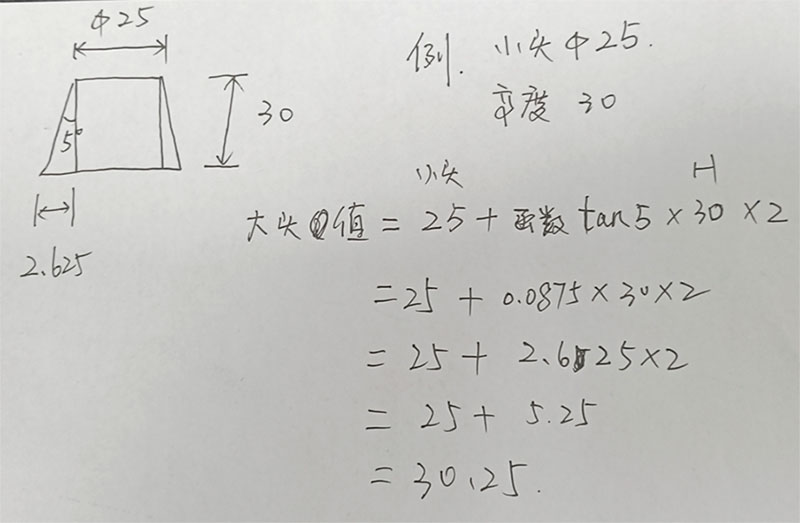 Φ25
30
5°
2.625
例. 小头Φ25.
高度 30
小头 H
大头值 = 25 + 函数 tan5 × 30 × 2
= 25 + 0.0875 × 30 × 2
= 25 + 2.625 × 2
= 25 + 5.25
= 30.25.